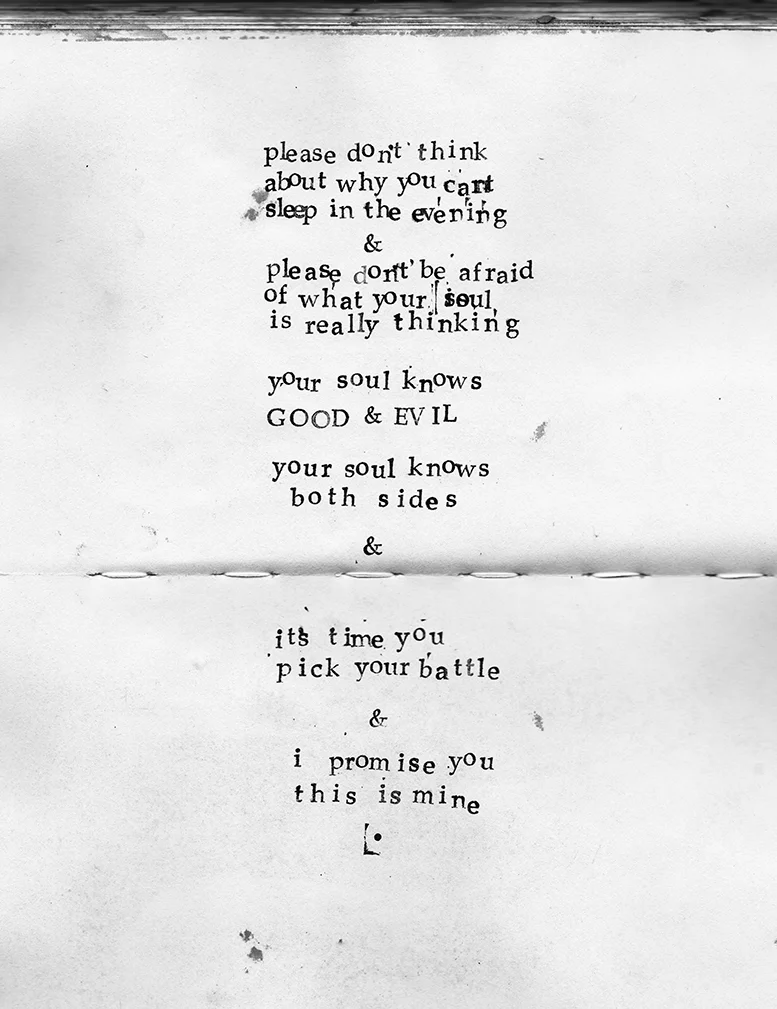 please don't think
about why you cant
sleep in the evening
&
please don't be afraid
of what your soul
is really thinking
your soul knows
GOOD & EVIL
your soul knows
both sides
&
its time you
pick your battle
&
i promise you
this is mine
.